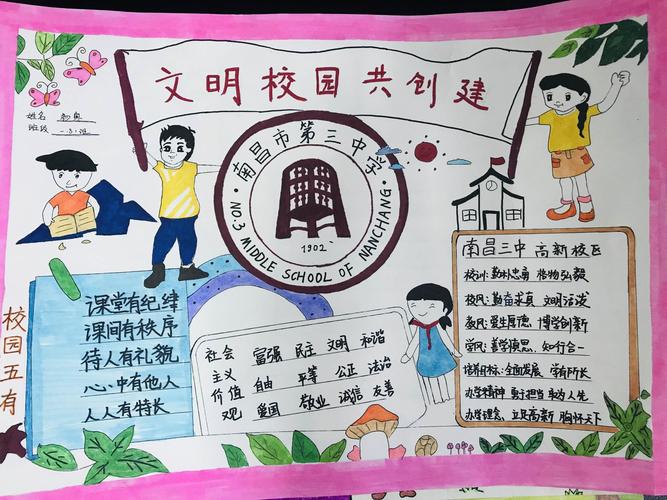 文明校园共创建
姓名
班级
南昌市第三中学
1902
NO.3 MIDDLE SCHOOL OF NANCHANG
校园五有
课堂有纪纬
课间有秩序
待人有礼貌
心中有他人
人人有特长
社会 富强 民主 文明 和谐
主义
价值 自由 平等 公正 法治
观 爱国 敬业 诚信 友善
南昌三中 高新校区
校训:勤朴忠勇 格物弘毅
校风:勤奋求真 文明活泼
教风:爱生厚德 博学创新
学风:善学慎思,知行合一
培育目标:全面发展、学有所长
办学精神 勇于担当 享动人生
办学理念、立足高新 胸怀天下